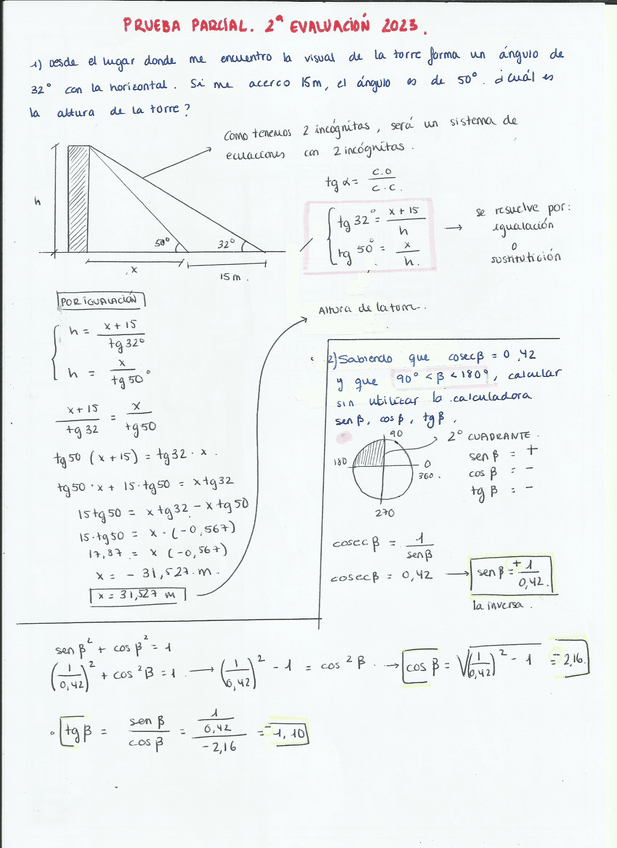 PRUEBA PARCIAL. 2ª EVALUACIÓN 2023.
1) Desde el lugar donde me encuentro la visual de la torre forma un ángulo de
32° con la horizontal. Si me acerco 15m, el ángulo es de 50°. ¿Cuál es
la altura de la torre?
Como tenemos 2 incógnitas, será un sistema de
ecuaciones con 2 incógnitas.
tg α = c.o / c.c.
h
50°
32°
x
15 m.
tg 32° = x+15 / h
tg 50° = x / h.
→ se resuelve por:
igualación
o
sustitutición
POR IGUALACIÓN
h = x+15 / tg 32°
h = x / tg 50°
x+15 / tg 32 = x / tg 50
tg 50 (x+15) = tg 32 · x.
tg 50 · x + 15 · tg 50 = x tg 32
15 tg 50 = x tg 32 - x tg 50
15 · tg 50 = x · (-0,567)
17,87 = x (-0,567)
x = - 31,527 m.
x = 31,527 m
Altura de la torre.
2) Sabiendo que cosec β = 0,42
y que 90° < β < 180°, calcular
sin utilizar la calculadora
sen β, cos β, tg β.
90
180
0
360.
270
2º CUADRANTE.
sen β = +
cos β = -
tg β = -
cosec β = 1 / sen β
cosec β = 0,42 → sen β = + 1 / 0,42.
la inversa.
sen β² + cos β² = 1
(1 / 0,42)² + cos² β = 1. → (1 / 0,42)² - 1 = cos² β. → cos β = √(1 / 0,42)² - 1 = -2,16.
tg β = sen β / cos β = 1 / 0,42 / -2,16 = -1,10